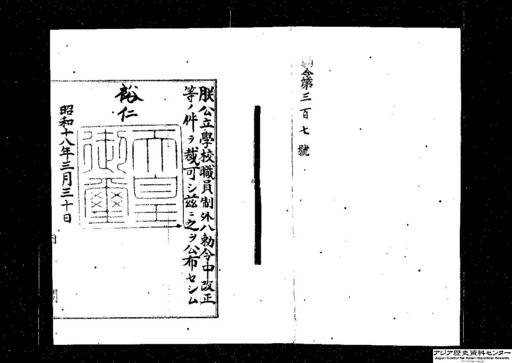 勅令第三百七號
朕公立學校職員制外八勅令中改正
等ノ件ヲ裁可シ茲ニ之ヲ公布セシム
裕仁
天皇御璽
昭和十八年三月三十日
アジア歴史資料センター
Japan Center for Asian Historical Records